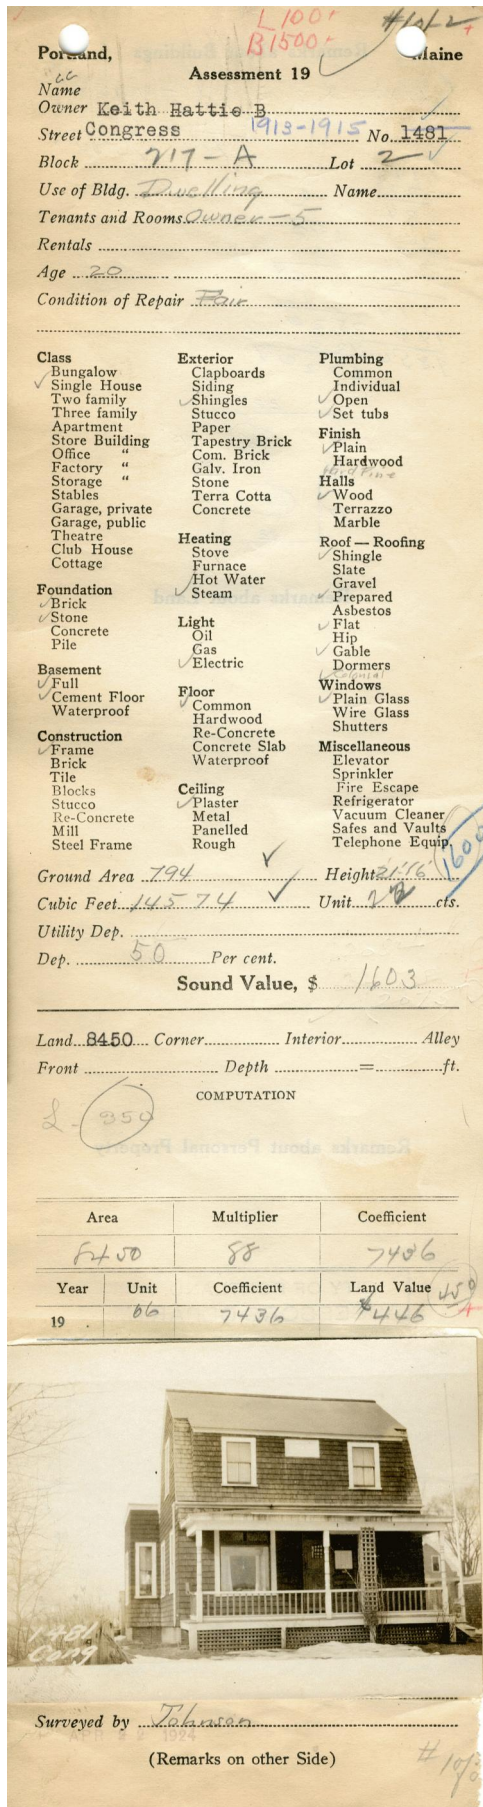 L 100+
B 1500-
#1 of 2 +
Portland, Maine
Assessment 19
Name
Owner Keith Hattie B
Street Congress 1913-1915 No. 1481
Block 217-A Lot 2
Use of Bldg. Dwelling Name
Tenants and Rooms Owner-5
Rentals
Age 20
Condition of Repair Fair
Class
Bungalow
✓ Single House
Two family
Three family
Apartment
Store Building
Office "
Factory "
Storage "
Stables
Garage, private
Garage, public
Theatre
Club House
Cottage
Foundation
✓ Brick
✓ Stone
Concrete
Pile
Basement
✓ Full
✓ Cement Floor
Waterproof
Construction
✓ Frame
Brick
Tile
Blocks
Stucco
Re-Concrete
Mill
Steel Frame
Exterior
Clapboards
Siding
✓ Shingles
Stucco
Paper
Tapestry Brick
Com. Brick
Galv. Iron
Stone
Terra Cotta
Concrete
Heating
Stove
Furnace
Hot Water
✓ Steam
Light
Oil
Gas
✓ Electric
Floor
✓ Common
Hardwood
Re-Concrete
Concrete Slab
Waterproof
Ceiling
✓ Plaster
Metal
Panelled
Rough
Plumbing
Common
✓ Individual
✓ Open
✓ Set tubs
Finish
✓ Plain
Hardwood
Hard Pine
Halls
✓ Wood
Terrazzo
Marble
Roof — Roofing
✓ Shingle
Slate
Gravel
✓ Prepared
Asbestos
✓ Flat
Hip
✓ Gable
Dormers
✓ Colonial
Windows
✓ Plain Glass
Wire Glass
Shutters
Miscellaneous
Elevator
Sprinkler
Fire Escape
Refrigerator
Vacuum Cleaner
Safes and Vaults
Telephone Equip.
1600
Ground Area 794 ✓ Height 21-16
Cubic Feet 14574 ✓ Unit 22 cts.
Utility Dep.
Dep. 50 Per cent.
Sound Value, $ 1603
Land 8450 Corner Interior Alley
Front Depth = ft.
COMPUTATION
L - 350
Area Multiplier Coefficient
8450 88 7436
Year Unit Coefficient Land Value 450
19 06 7436 $446
1481
Cong
Surveyed by Johnson
1924
(Remarks on other Side)